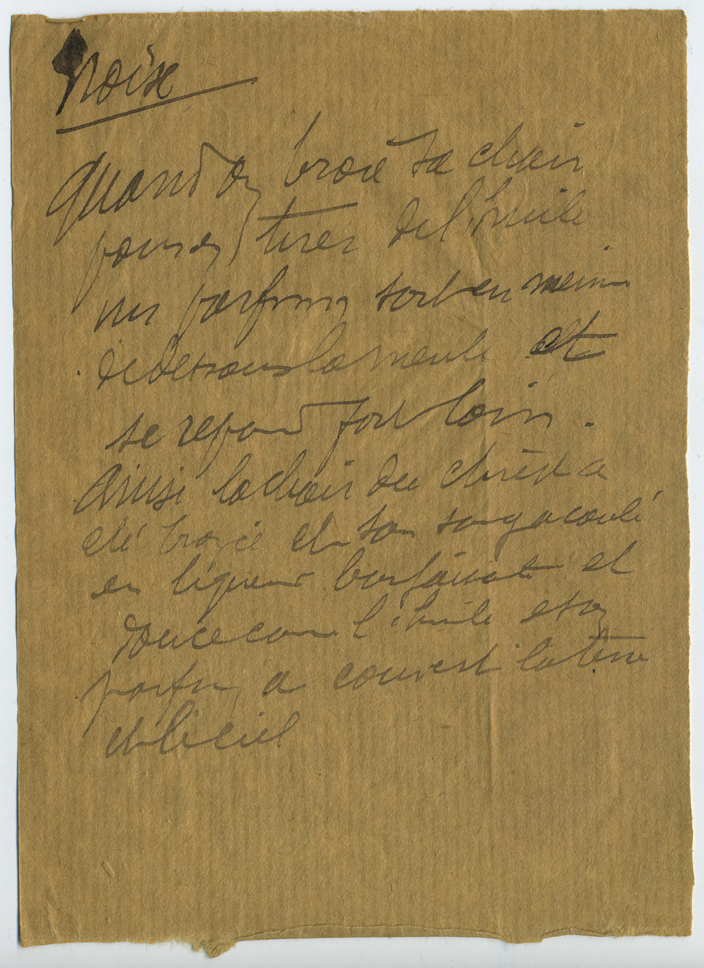 Noix
Quand on broie sa chair
pour en tirer de l'huile
un parfum sort en
de dessous la meule et
se repand fort loin.
Ainsi la chair du christ a
été broyée et son sang a coulé
en liqueur et
douce comme l'huile et son
parfum a couvert la terre
et le ciel